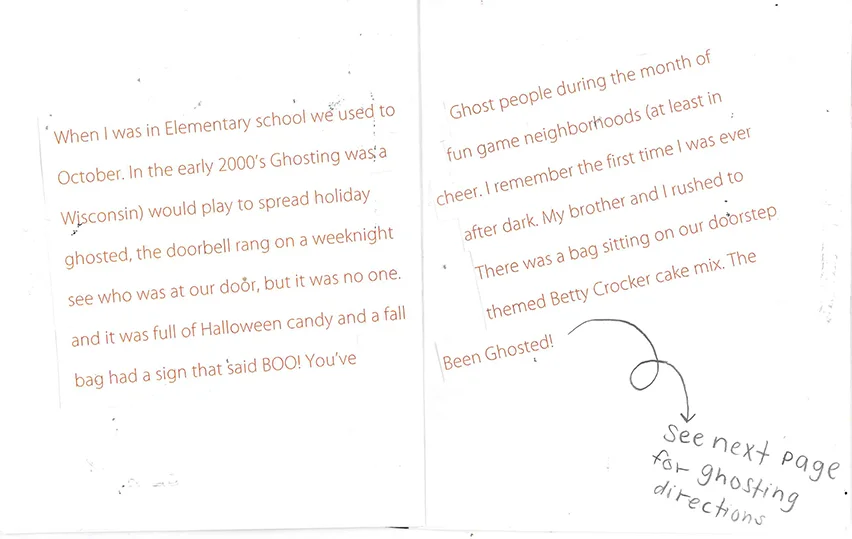 When I was in Elementary school we used to
Ghost people during the month of
October. In the early 2000's Ghosting was a
fun game neighborhoods (at least in
Wisconsin) would play to spread holiday
cheer. I remember the first time I was ever
ghosted, the doorbell rang on a weeknight
after dark. My brother and I rushed to
see who was at our door, but it was no one.
There was a bag sitting on our doorstep
and it was full of Halloween candy and a fall
themed Betty Crocker cake mix. The
bag had a sign that said BOO! You've
Been Ghosted!
See next page
for ghosting
directions